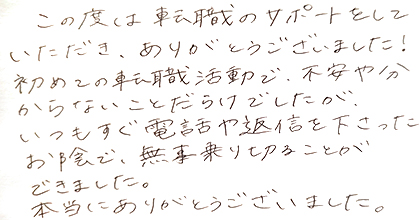 この度は転職のサポートをして
いただき、ありがとうございました!
初めての転職活動で、不安や分
からないことだらけでしたが、
いつもすぐ電話や返信を下さった
お陰で、無事乗り切ることが
できました。
本当にありがとうございました。